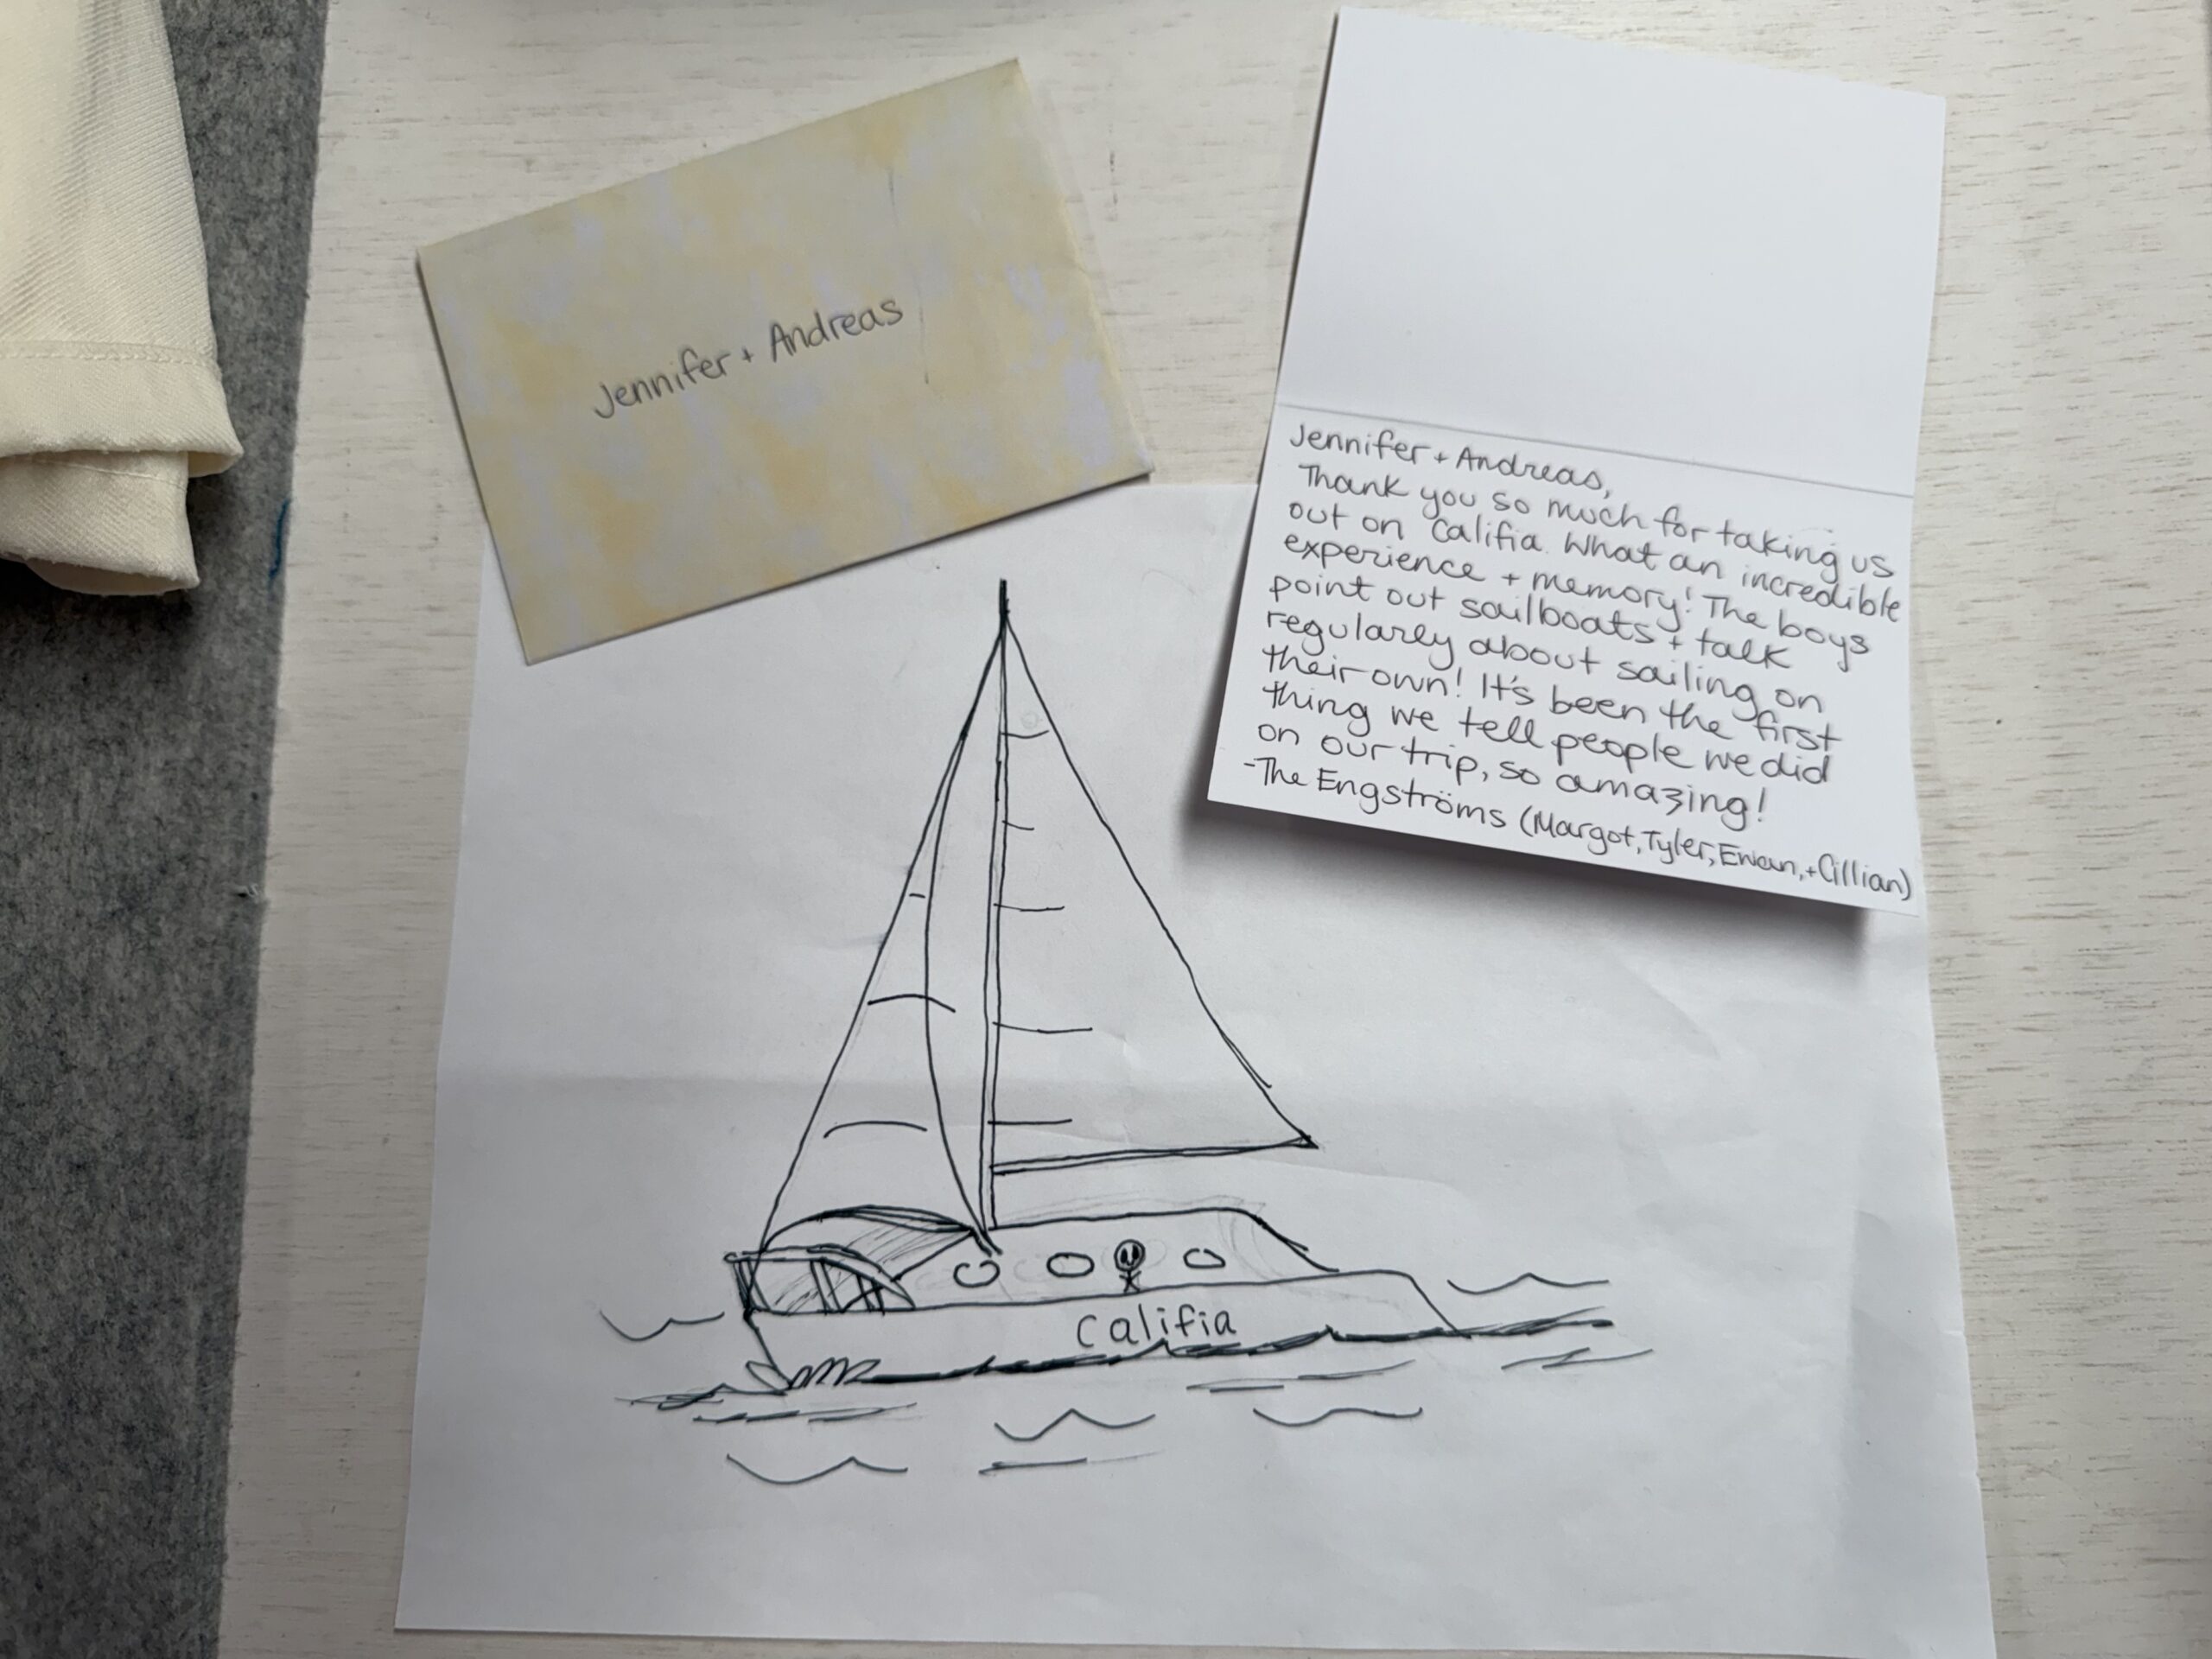 Jennifer + Andreas
Jennifer + Andreas,
Thank you so much for taking us
out on Califia. What an incredible
experience + memory! The boys
point out sailboats + talk
regularly about sailing on
their own! It's been the first
thing we tell people we did
on our trip, so amazing!
-The Engströms (Margot, Tyler, Ewan, + Cillian)
Califia